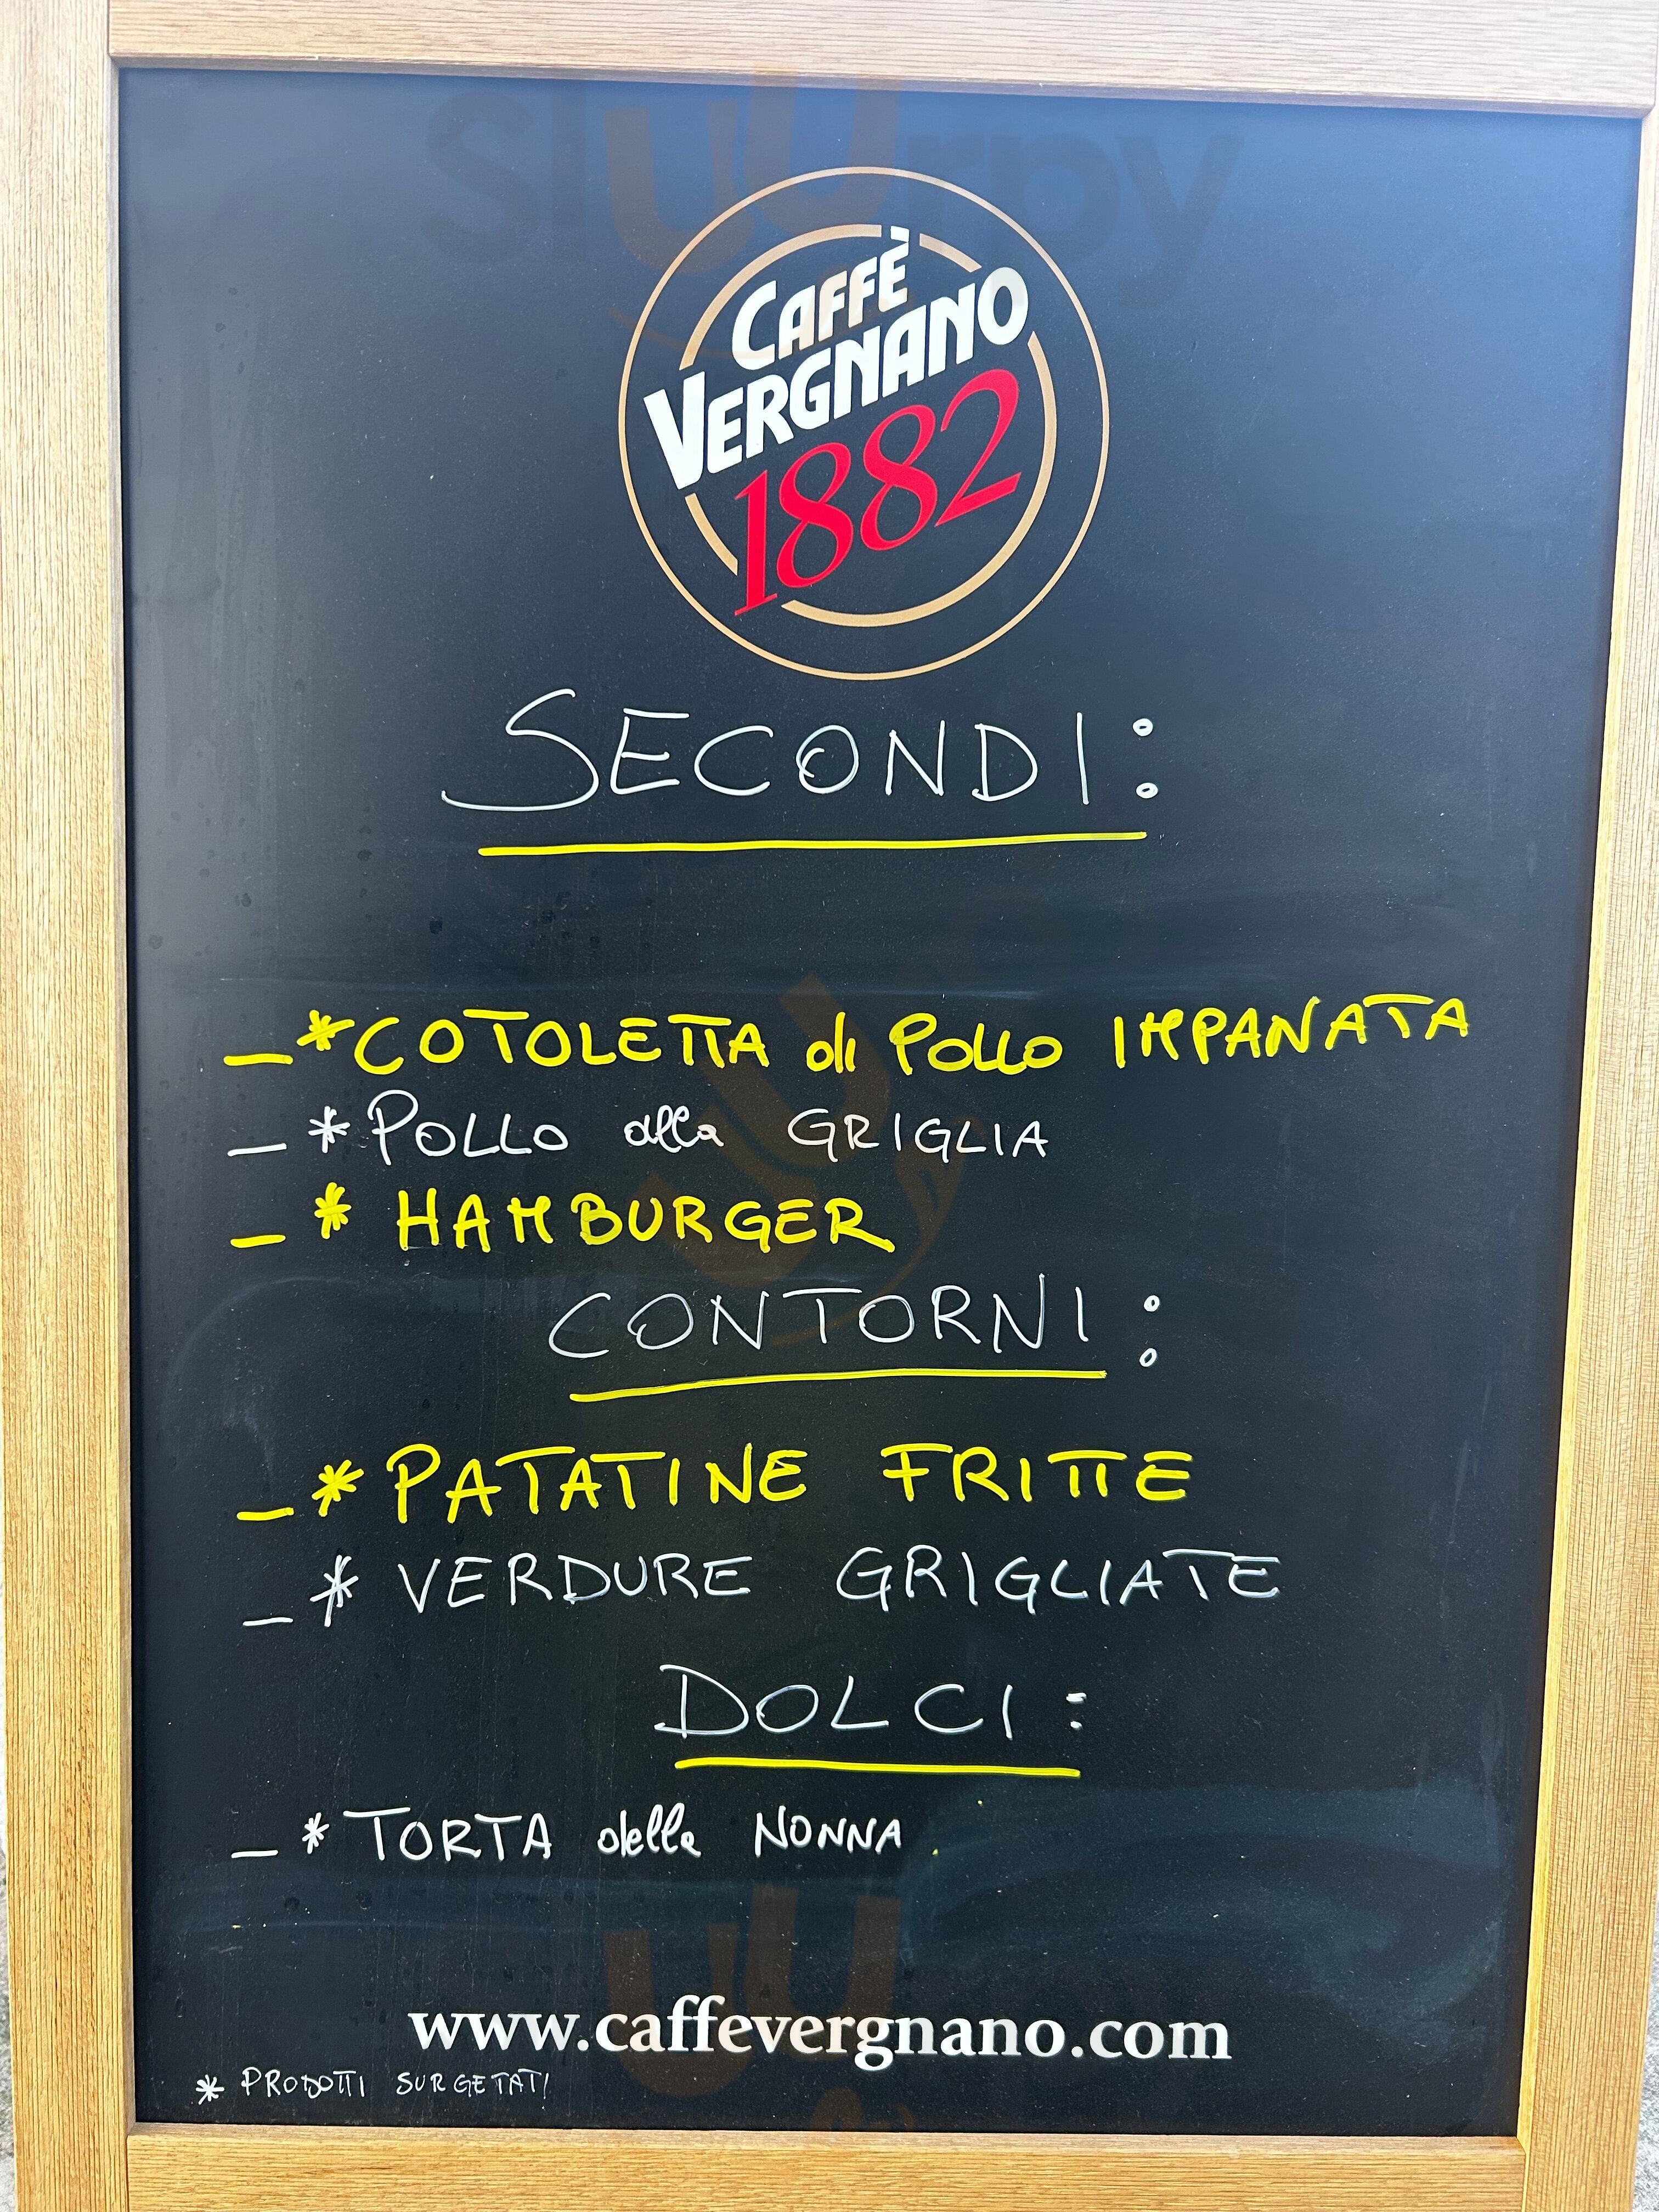 sluurpy
CAFFÈ
VERGNANO
1882
SECONDI:
_ *COTOLETTA di POLLO IMPANATA
_ *POLLO alla GRIGLIA
_ * HAMBURGER
CONTORNI:
_ * PATATINE FRITTE
_ * VERDURE GRIGLIATE
DOLCI:
_ * TORTA della NONNA
www.caffevergnano.com
* PRODOTTI SURGETATI